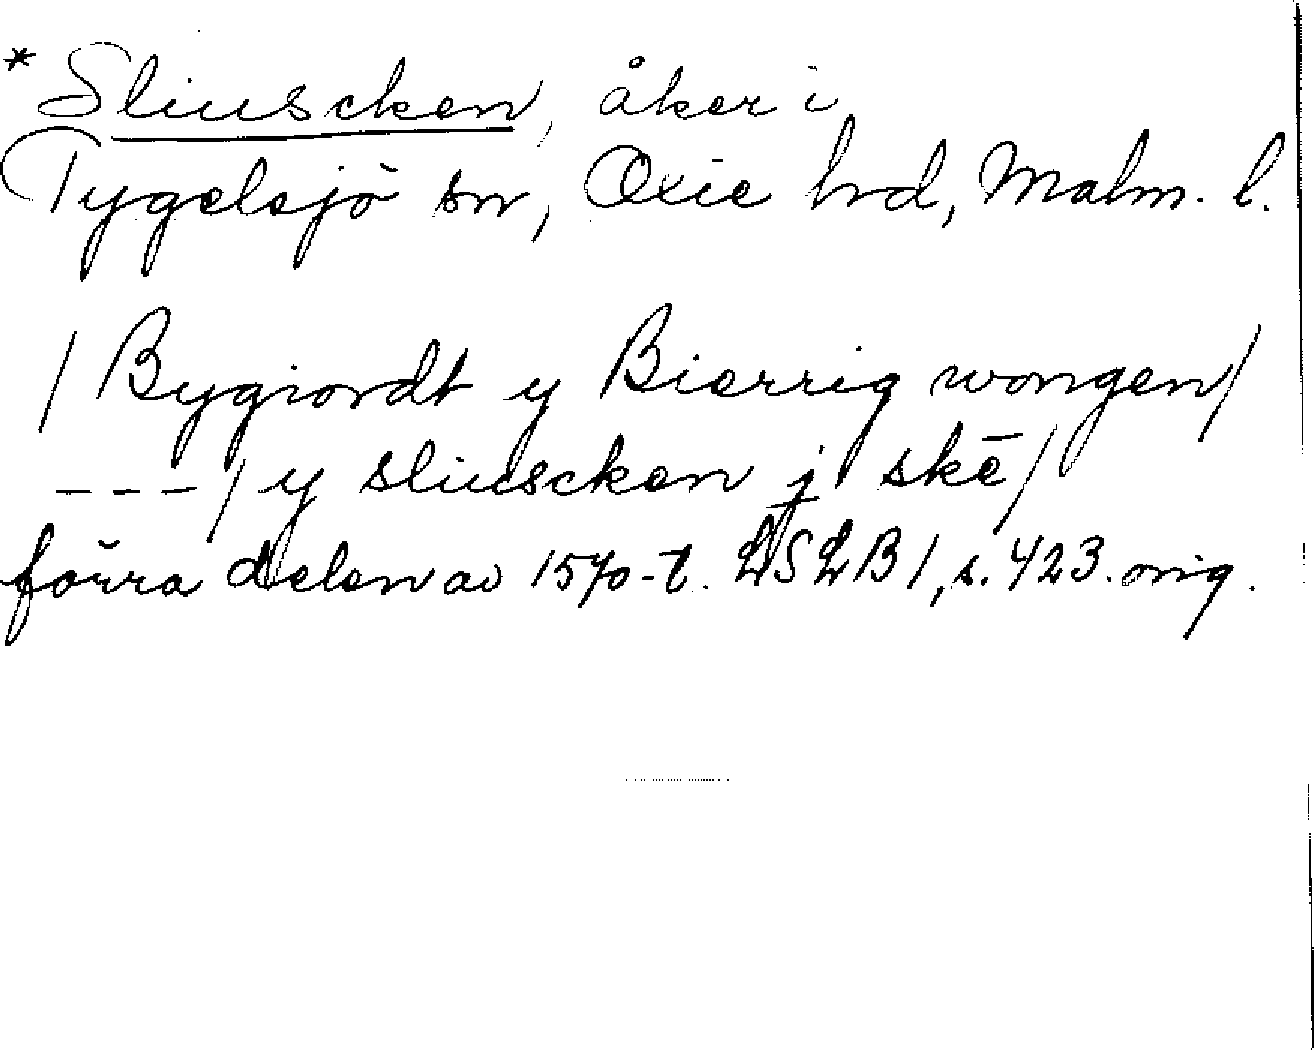 * Sliuscken, åker i
Tygelsjö sn, Oxie hd, Malm. l.
/ Bygiordt y Bierrig wongen/
--- / y sliuscken j skē/
förra delen av 1570-t. LSLB 1, s. 423. orig.